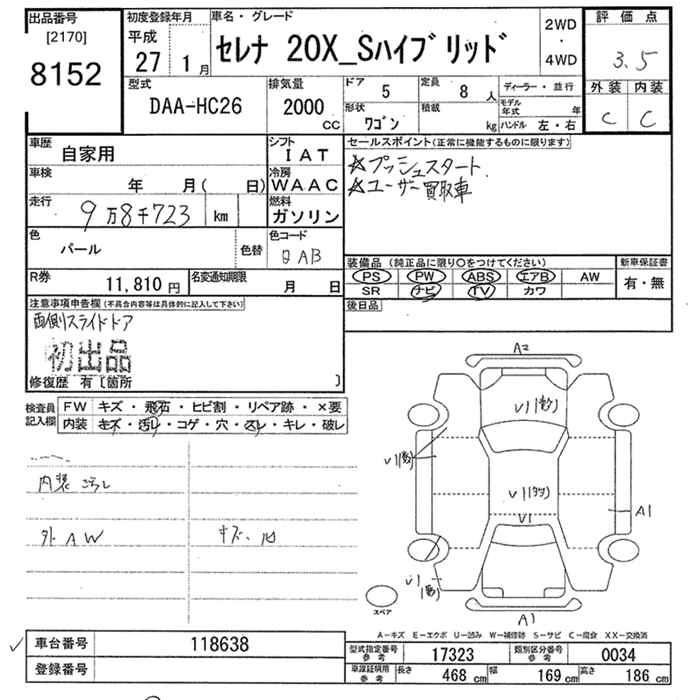 出品番号
[2170]
8152
初度登録年月
平成
27 1月
車名・グレード
セレナ 20X_Sハイブリッド
2WD
・
4WD
評価点
3.5
外装 内装
C C
型式
DAA-HC26
排気量
2000
CC
ドア
5
定員
8人
形状
ワゴン
積載
kg
ディーラー・並行
モデル年式 年
ハンドル 左・右
車歴
自家用
シフト
IAT
車検
年 月( 日)
冷房
WAAC
走行
9万8千723 km
燃料
ガソリン
色
パール
色替
色コード
QAB
R券
11,810円
名変通知期限
月 日
セールスポイント(正常に機能するものに限ります)
☆プッシュスタート
☆ユーザー買取車
装備品(純正品に限り○をつけてください)
PS PW ABS エアB AW
SR ナビ TV カワ
新車保証書
有・無
後日品
注意事項申告欄(不具合内容等は具体的に記入して下さい)
両側スライドドア
初出品
修復歴 有〔箇所 〕
検査員記入欄
FW キズ・飛石・ヒビ割・リペア跡・×要
内装 キズ・汚レ・コゲ・穴・スレ・キレ・破レ
内装 汚レ
外 AW キズ・凹
A2
V1
V1
V1
V1
A1
V1
A1
スペア
A-キズ E-エクボ U-凹み W-補修跡 S-サビ C-腐食 XX-交換済
車台番号
118638
登録番号
型式指定番号参考
17323
類別区分番号参考
0034
車庫証明用参考
長さ 468cm 幅 169cm 高さ 186cm